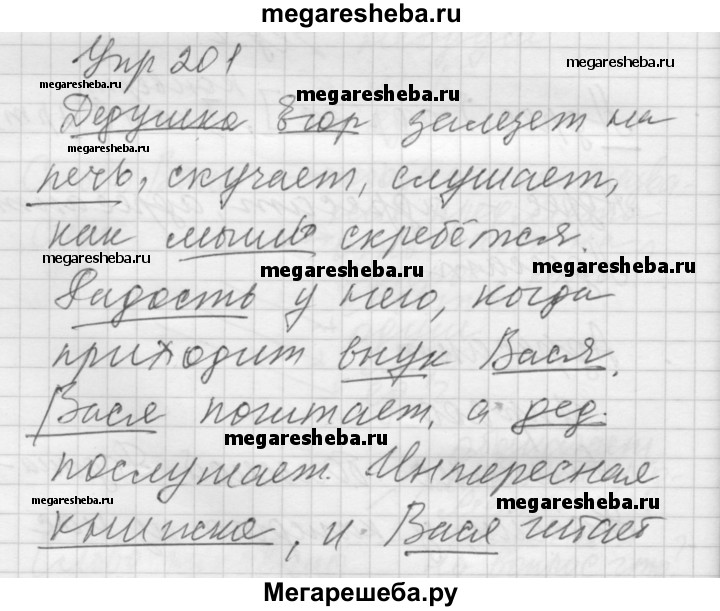 megaresheba.ru
Упр 201
megaresheba.ru
megaresheba.ru
megaresheba.ru
Дедушка Егор залезет на
megaresheba.ru
печь, скучает, слушает,
как мышь скребётся.
megaresheba.ru
megaresheba.ru
megaresheba.ru
Радость у него, когда
приходит внук Вася.
Вася почитает, а дед
megaresheba.ru
послушает. Интересная
megaresheba.ru
megaresheba.ru
книжка, и Вася читает
Мегарешеба.ру